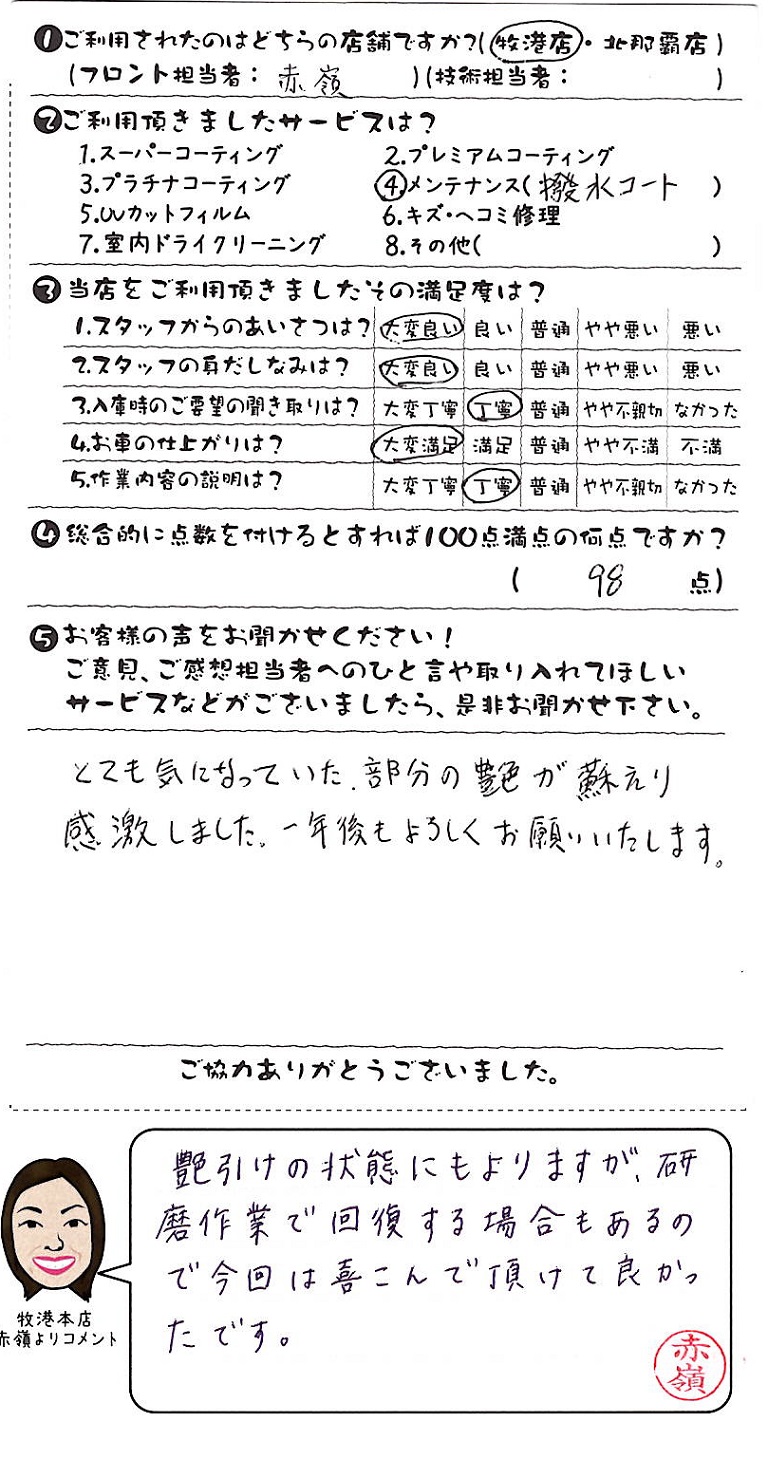 ❶ご利用されたのはどちらの店舗ですか?(牧港店・北那覇店)
(フロント担当者: 赤嶺 )(技術担当者: )
❷ご利用頂きましたサービスは?
1.スーパーコーティング 2.プレミアムコーティング
3.プラチナコーティング 4.メンテナンス(撥水コート )
5.UVカットフィルム 6.キズ・ヘコミ修理
7.室内ドライクリーニング 8.その他( )
❸当店をご利用頂きましたその満足度は?
1.スタッフからのあいさつは? 大変良い 良い 普通 やや悪い 悪い
2.スタッフの身だしなみは? 大変良い 良い 普通 やや悪い 悪い
3.入庫時のご要望の聞き取りは? 大変丁寧 丁寧 普通 やや不親切 なかった
4.お車の仕上がりは? 大変満足 満足 普通 やや不満 不満
5.作業内容の説明は? 大変丁寧 丁寧 普通 やや不親切 なかった
❹総合的に点数を付けるとすれば100点満点の何点ですか?
( 98 点)
❺お客様の声をお聞かせください!
ご意見、ご感想担当者へのひと言や取り入れてほしい
サービスなどがございましたら、是非お聞かせ下さい。
とても気になっていた、部分の艶が蘇えり
感激しました。一年後もよろしくお願いいたします。
ご協力ありがとうございました。
艶引けの状態にもよりますが、研
磨作業で回復する場合もあるの
で今回は喜こんで頂けて良かっ
たです。
牧港本店
赤嶺よりコメント
赤嶺